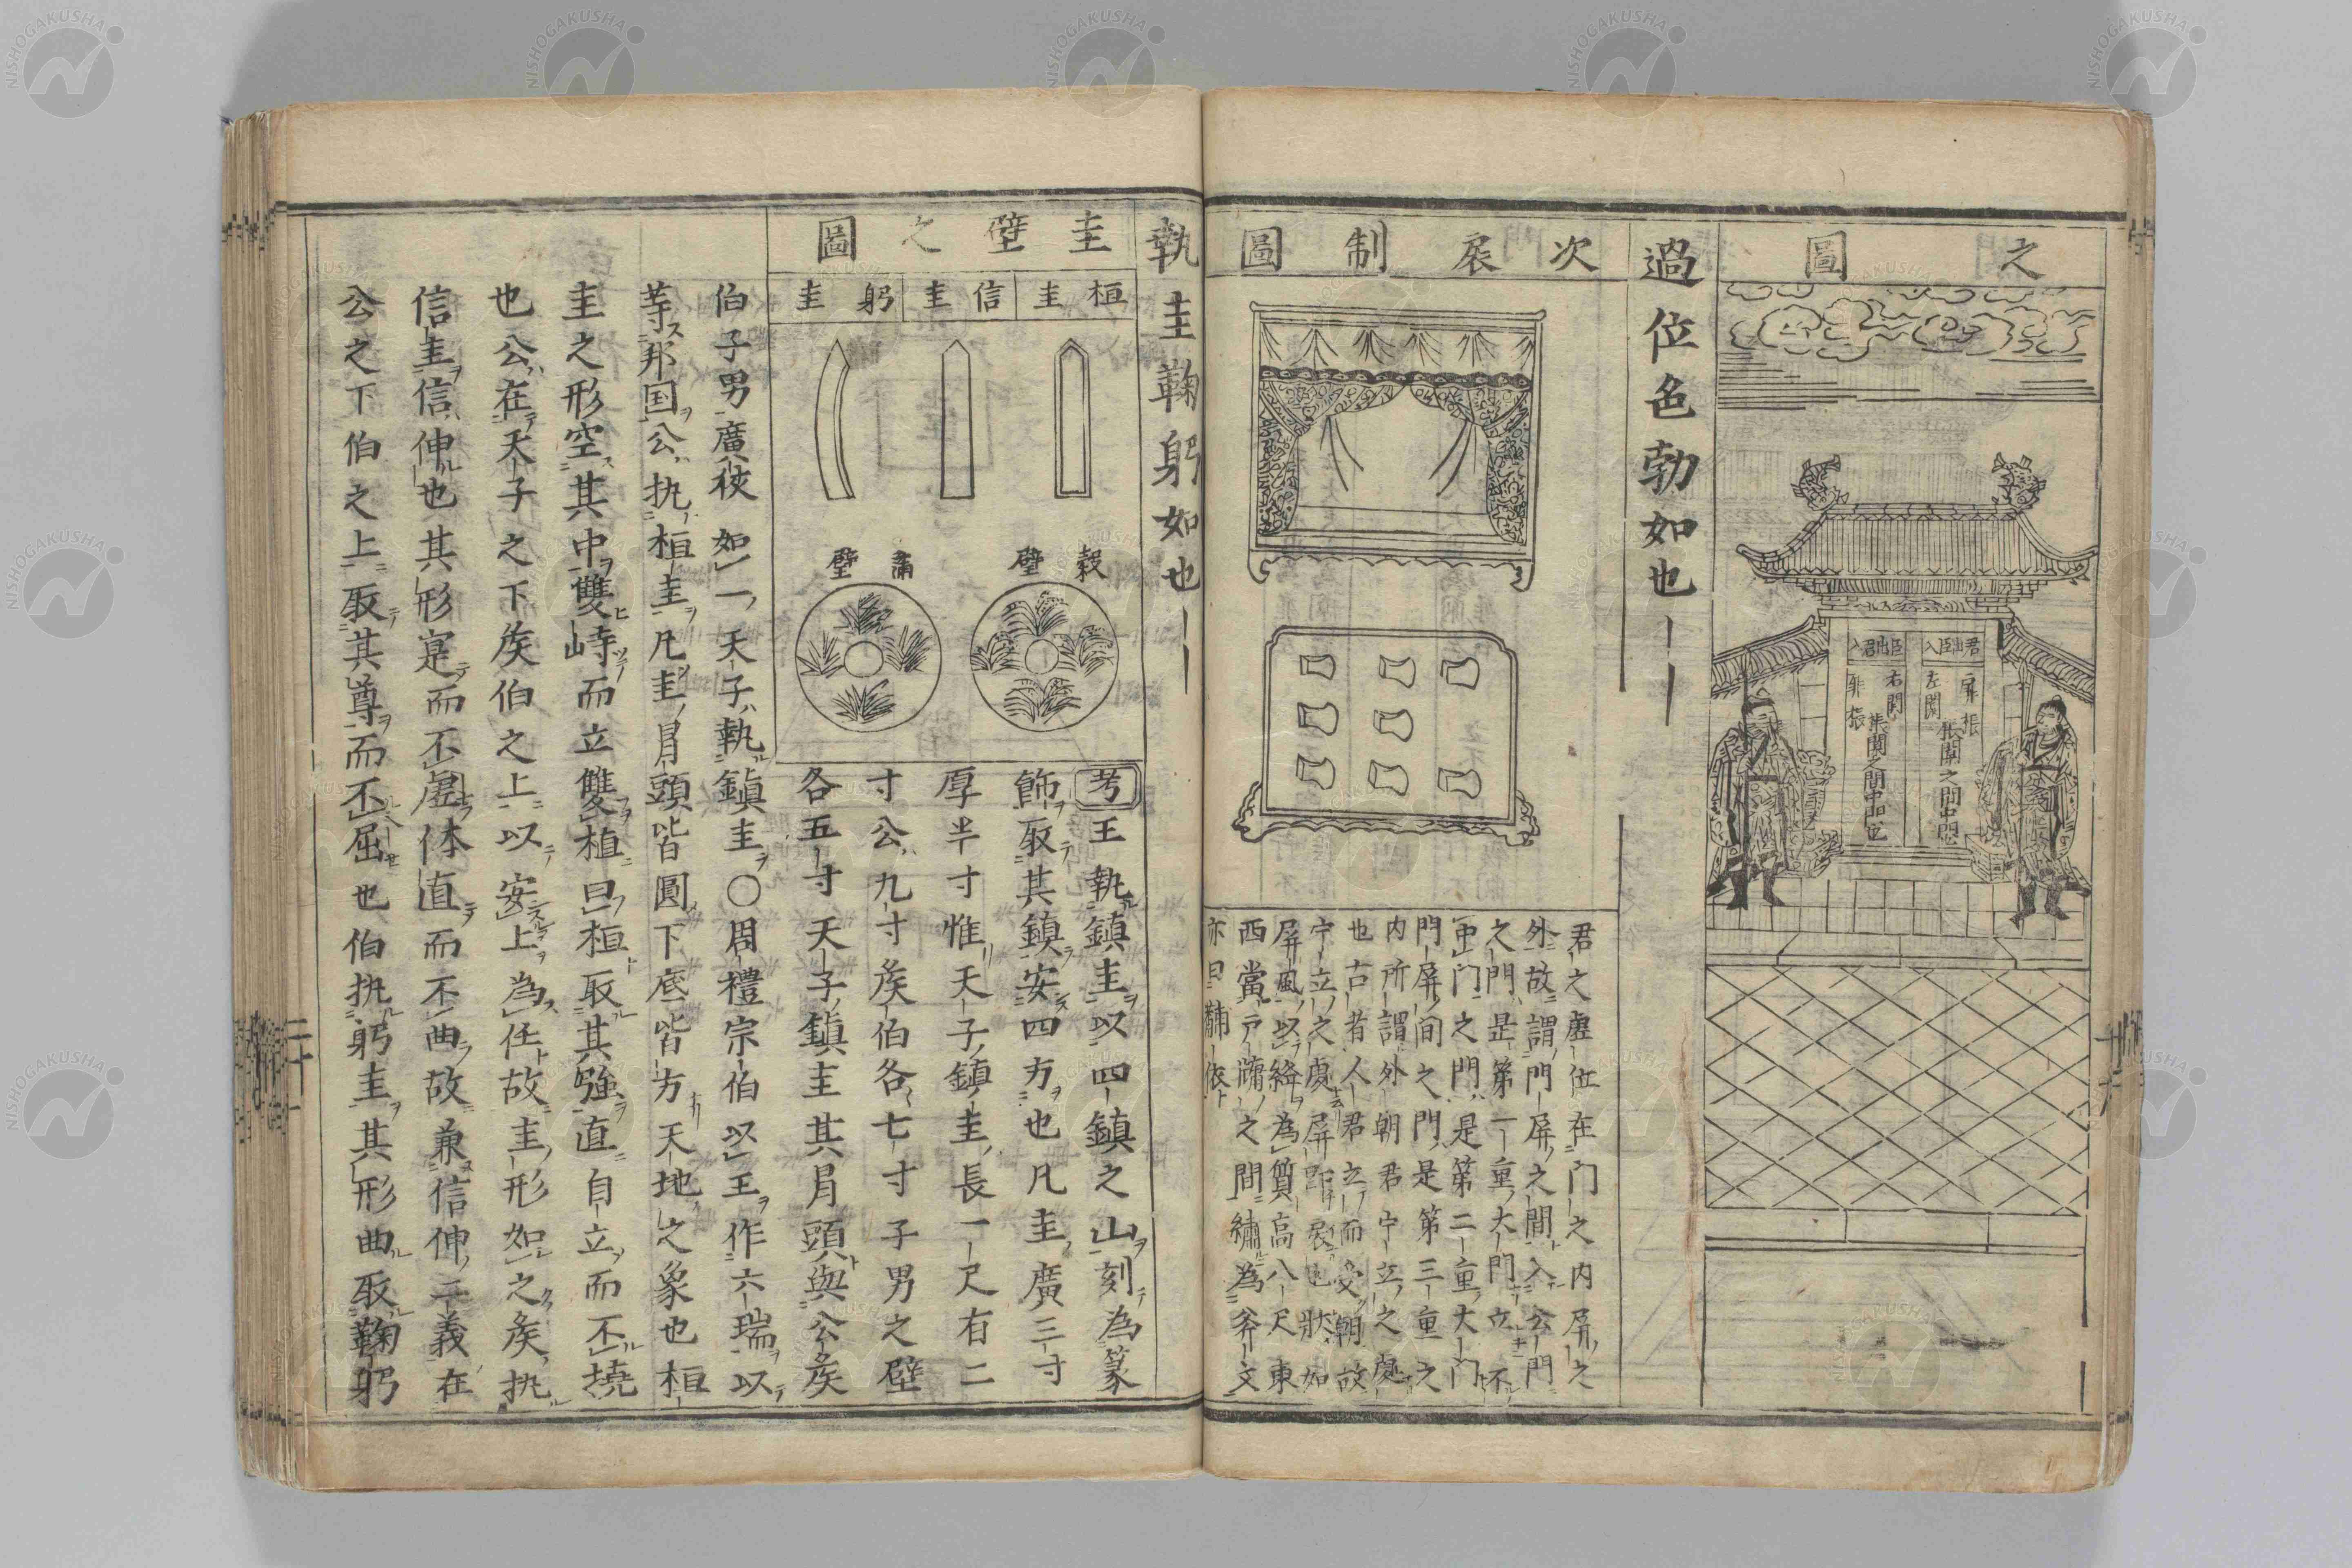 之圖
君出臣入
臣出君入
扉
棖
左闑
棖闑之間中門
右闑
扉
棖
棖闑之間中門
過位色勃如也
次扆制圖
君之虛位在门之内屏之
外故謂門屏之間入公門
之門是第一重大門立不
中门之門是第二重大门
門屏间之門是第三重之
内所謂外朝君宁立之處
也古者人君立而受朝故
宁立之處屏扆也狀如
屏風以絳為質高八尺東
西當户牖之間繡為斧文
亦曰黼依
執圭鞠躬如也
圭璧之圖
桓圭
信圭
躬圭
穀璧
蒲璧
考王執鎮圭以四鎮之山刻為篆
飾取其鎮安四方也凡圭廣三寸
厚半寸惟天子鎮圭長一尺有二
寸公九寸矦伯各七寸子男之璧
各五寸天子鎮圭其肩頭與公矦
伯子男廣狹如一天子執鎮圭〇周禮宗伯以王作六瑞以
等邦国公执桓圭凡圭肩頭皆圓下底皆方天地之象也桓
圭之形空其中雙峙而立雙植曰桓取其強直自立而不撓
也公在天子之下矦伯之上以安上為任故圭形如之矦执
信圭信伸也其形寔而不虚体直而不曲故兼信伸二義在
公之下伯之上取其尊而不屈也伯执躬圭其形曲取鞠躬
二十
NISHOGAKUSHA